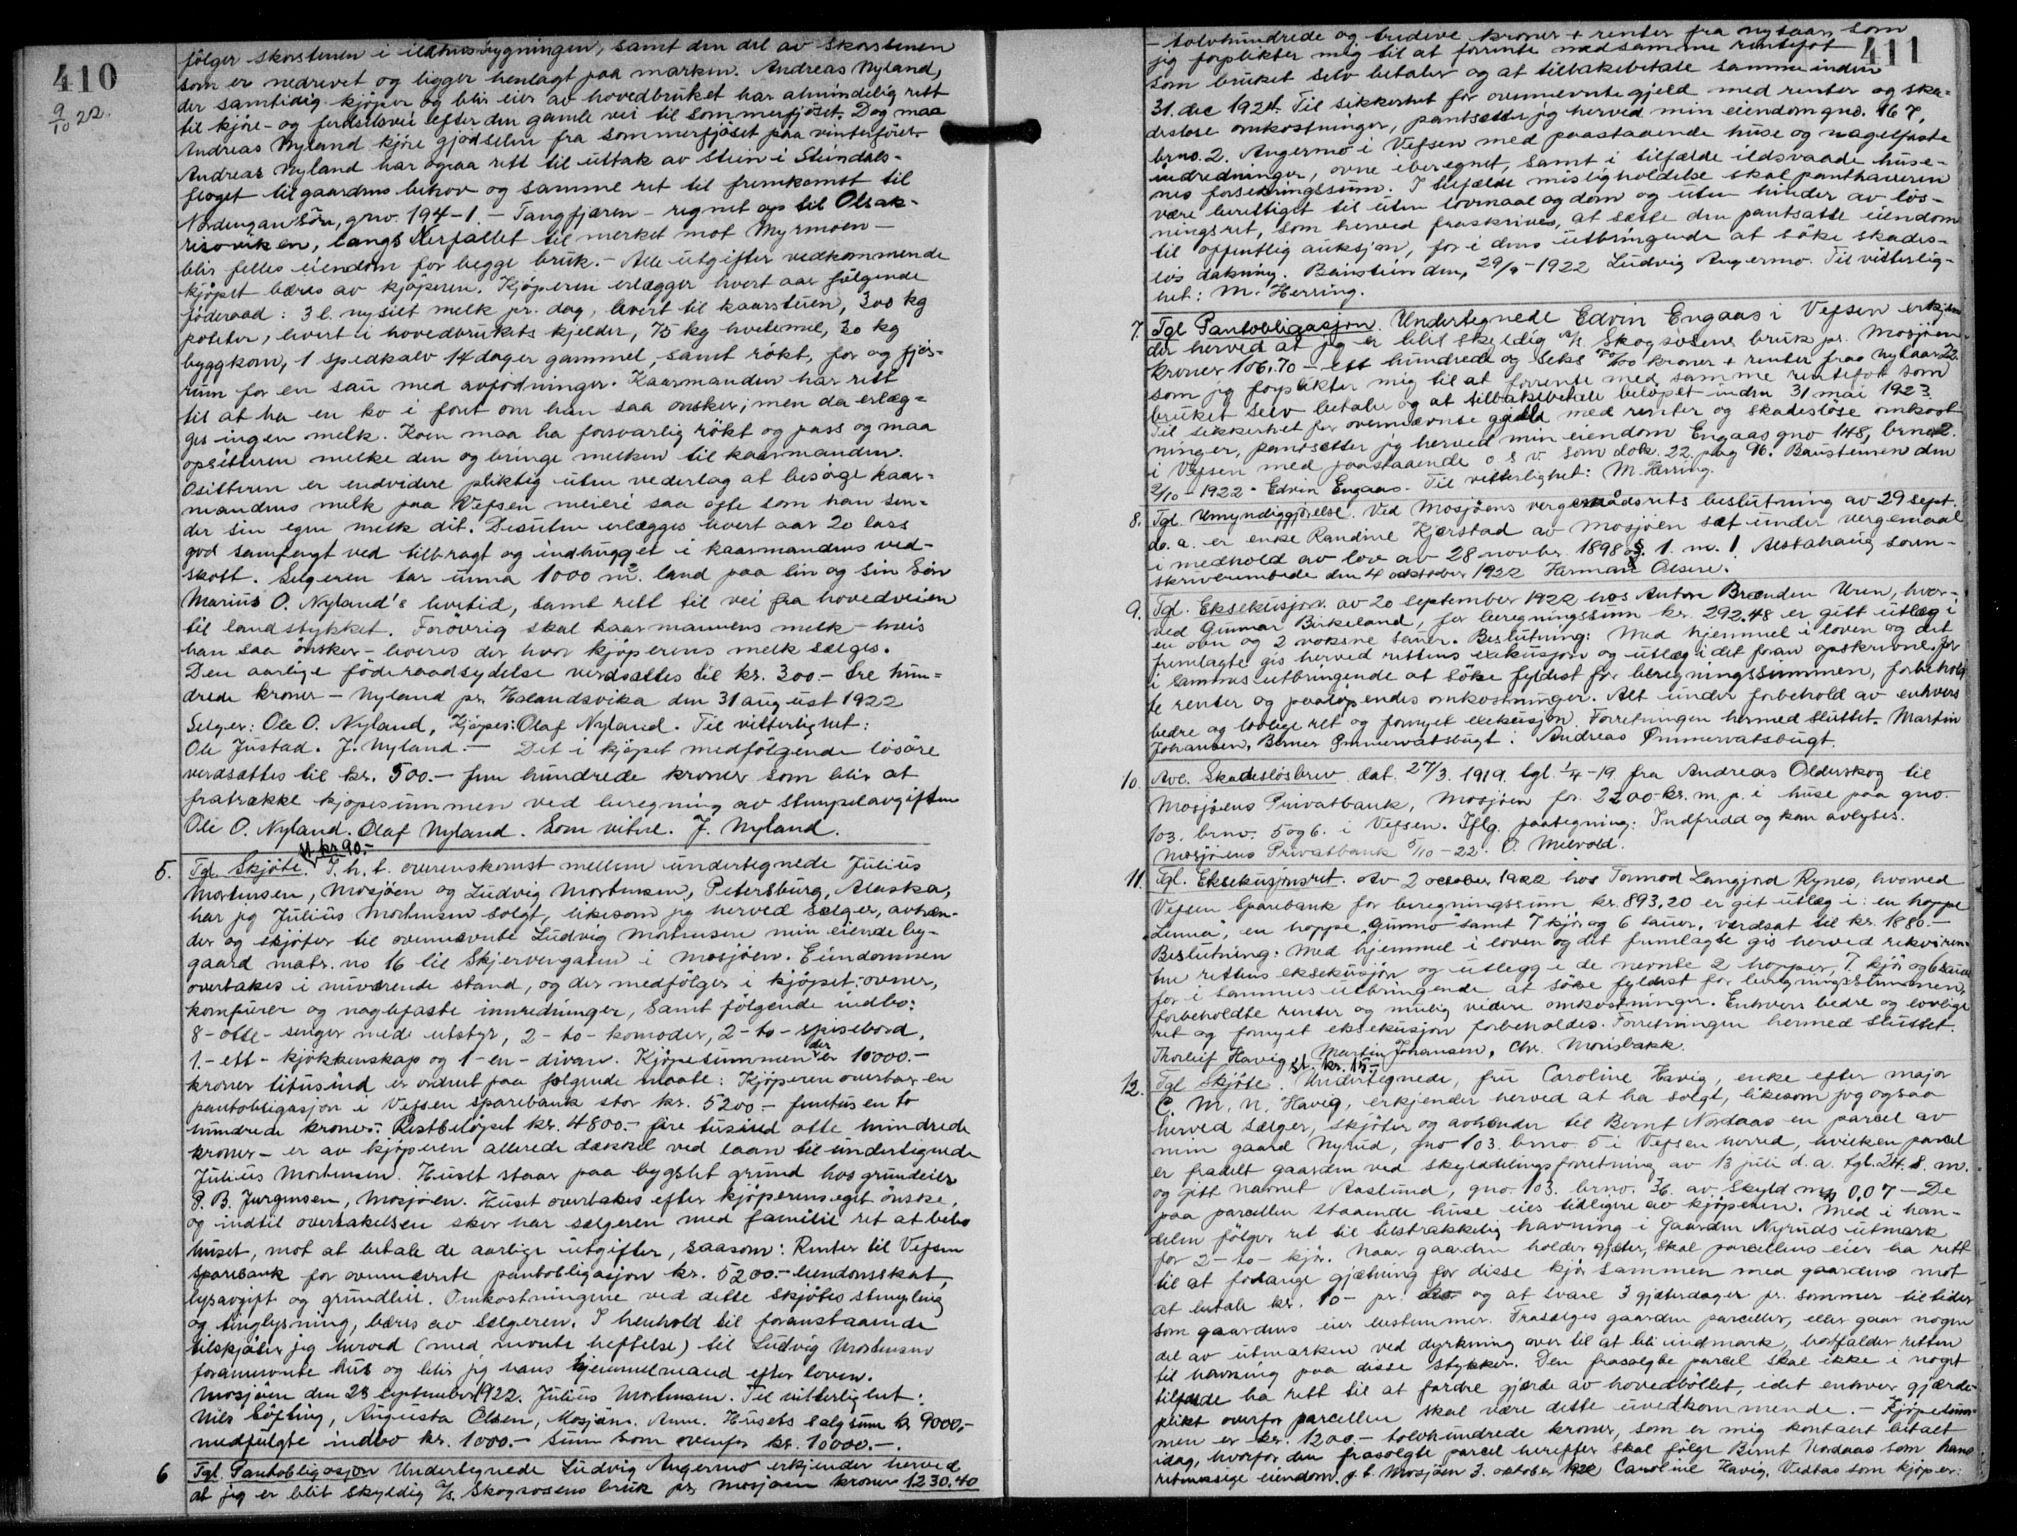 410
9/10 22.
følger skorstenen i ildhusbygningen, samt den del av skorstenen
som er nedrevet og ligger henlagt paa marken. Andreas Nyland,
der samtidig kjøper og blir eier av hovedbruket har almindelig rett
til kjøre- og ferdselsvei efter den gamle vei til sommerfjøset. Dog maa
Andreas Nyland kjøre gjødselen fra sommerfjøset paa vinterføret
Andreas Nyland har ogsaa rett til uttak av stein i Steindals-
floget til gaardens behov og samme ret til fremkomst til
Nordengan Søn, gno. 194-1. - Tangfjæren - regnet op til Olsak-
risoviken, langs Nerfallet til merket mot Myrmoen -
blir felles eiendom for begge bruk. - Alle utgifter vedkommende
kjøpet bæres av kjøperen. Kjøperen erlægger hvert aar følgende
føderaad: 3 l. nysilt melk pr. dag, levert til kaarstuen, 300 kg
poteter, levert i hovedbrukets kjelder, 75 kg hvetemel, 30 kg
byggkorn, 1 spedkalv 14 dager gammel, samt røkt, for og fjøs-
rum for en sau med avfødninger. Kaarmanden har rett
til at ha en ko i foret om han saa ønsker; men da erlæg-
ges ingen melk. Koen maa ha forsvarlig røkt og pass og maa
opsitteren melke den og bringe melken til kaarmanden.
Ositteren er endvidere pliktig uten vederlag at besørge kaar-
mandens melk paa Vefsen meieri saa ofte som han sen-
der sin egen melk dit. Desuten erlegges hvert aar 20 lass
god samfengt ved tilbragt og indhugget i kaarmandens ved-
skott. Selgeren tar unna 1000 m² land paa sin og sin Søn
Marius O. Nyland's livstid, samt rett til vei fra hovedveien
til landstykket. Forøvrig skal kaarmannens melk - hvis
han saa ønsker - leveres der hvor kjøperens melk sælges.
Den aarlige føderaadsydelse verdsættes til kr. 300.- tre hun-
drede kroner - Nyland pr. Halandsvika den 31 august 1922
Selger: Ole O. Nyland, Kjøper: Olaf Nyland. Til vitterlighet:
Ole Justad. J. Nyland. - Det i kjøpet medfølgende løsøre
verdsættes til kr. 500.- fem hundrede kroner som blir at
fratrække kjøpesummen ved beregning av stempelavgiften
Ole O. Nyland. Olaf Nyland. Som vitne. J. Nyland.
st. kr 90.-
5. Tgl. Skjøte. I h. t. overenskomst mellem undertegnede Julius
Mortensen, Mosjøen og Ludvig Mortensen, Petersburg, Alaska,
har jeg Julius Mortensen solgt, likesom jeg herved sælger, avhæn-
der og skjøter til ovennævnte Ludvig Mortensen min eiende by-
gaard matr. no 16 til Skjervengaten i Mosjøen. Eiendommen
overtakes i nuværende stand, og der medfølger i kjøpet: ovner,
komfurer og naglefaste innredninger, samt følgende indbo:
8-otte-senger med utstyr, 2-to-komoder, 2-to-spisebord,
1.-ett-kjøkkenskap og 1-en-divan. Kjøpesummen der er 10000.-
kroner titusind er ordnet paa følgende maate: Kjøperen overtar en
pantobligasjon i Vefsen sparebank stor kr. 5200.- femtusen to
hundrede kroner. Restbeløpet kr. 4800.- fire tusind otte hundrede
kroner - er av kjøperen allerede dækket ved laan til undertegnede
Julius Mortensen. Huset staar paa bygslet grund hos grundeier
P. B. Jurgensen, Mosjøen. Huset overtakes efter kjøperens eget ønske,
og indtil overtakelsen sker har sælgeren med familie ret at bebo
huset, mot at betale de aarlige utgifter, saasom: Renter til Vefsen
sparebank for ovennævnte pantobligasjon kr. 5200.- eiendomsskat,
lysavgift og grundleie. Omkostningene ved dette skjøtes stempling
og tinglysning, bæres av sælgeren. I henhold til foranstaaende
tilskjøter jeg herved (med nævnte heftelse) til Ludvig Mortensen
forannævnte hus og blir jeg hans hjemmelmand efter loven.
Mosjøen den 28 september 1922. Julius Mortensen. Til vitterlighet:
Nils Søfting, Augusta Olsen, Mosjøen. Anm. Husets salgsum kr 9000,-
medfulgte indbo kr. 1000.- Sum som ovenfor kr. 10000.-.
6 Tgl. Pantobligasjon Undertegnede Ludvig Angermo erkjender herved
at jeg er blit skyldig A/S. Skogsosens bruk pr. Mosjøen kroner 1230,40
411
- tolvhundrede og tredeve kroner + renter fra nytaar, som
jeg forplikter mig til at forrente med samme rentefot
som bruket selv betaler og at tilbakebetale samme inden
31. dec 1924. Til sikkerhet for ovennevnte gjeld med renter og ska-
desløse omkostninger, pantsetter jeg herved min eiendom gno. 167,
brno. 2. Angermo i Vefsen med paastaaende huse og nagelfaste
indredninger, ovne iberegnet, samt i tilfælde ildsvaade huse-
nes forsekringssum. I tilfælde misligholdelse skal panthaveren
være berettiget til uten lovmaal og dom og uten hinder av løs-
ningsret, som herved fraskrives, at sætte den pantsatte eiendom
til offentlig auksjon, for i dens utbringende at søke skades-
løs dækning. Baustein den, 29/9-1922 Ludvig Angermo. Til vitterlig-
het: M. Herring.
7. Tgl Pantobligasjon. Undertegnede Edvin Engaas i Vefsen erkjen
der herved at jeg er blit skyldig A/S. Skogsosens bruk pr. Mosjøen
kroner 106.70 - ett hundrede og seks 70/100 kroner + renter fra nytaar 22.
som jeg forplikter mig til at forrente med samme rentefot som
bruket selv betaler og at tilbakebetale beløpet inden 31 mai 1923
Til sikkerhet for ovennævnte gjeld med renter og skadesløse omkost
ninger, pantsetter jeg herved min eiendom Engaas gno 148, brno 2.
i Vefsen med paastaaende o s v som dok. 22. pag 96. Baustenen den
2/10-1922 - Edvin Engaas. Til vitterlighet: M. Herring.
8. Tgl. Umyndiggjørelse. Ved Mosjøens vergerådsrets beslutning av 29 sept.
d. a. er enke Randine Kjerstad av Mosjøen sat under vergemaal
i medhold av lov av 28 novbr. 1898 § 1. m. 1. Alstahaug soren-
skriverembede den 4 oktober 1922 Herman Olsen.
9. Tgl. Eksekusjon. av 20 september 1922 hos Anton Brænden Uren, hvor-
ved Gunnar Birkeland, for beregningssum kr. 292.48 er gitt utlæg i
en ovn og 2 voksne sauer. Beslutning: Med hjemmel i loven og det
fremlagte gis herved rettens exekusjon og utlæg i det foran opskrevne for
i sammes utbringende at søke fyldest for beregningssummen, forbehold
te renter og paaløpendes omkostninger. Alt under forbehold av enhvers
bedre og lovlige ret og fornyet exekusjon. Forretningen hermed sluttet. Martin
Johansen, Berner Ømmervatsbugt: Andreas Ømmervatsbugt.
10. Avl. Skadesløsbrev dat. 27/3. 1919. tgl. 1/4-19 fra Andreas Olderskog til
Mosjøens Privatbank, Mosjøen for 2200 kr. m. p. i huse paa gno.
103. brno. 5 og 6. i Vefsen. Iflg. paategning: Indfridd og kan avlyses.
Mosjøens Privatbank 5/10-22. O. Milvold.
11. Tgl. Eksekusjonsret. Av 2 october 1922 hos Tormod Langjord Rynes, hvorved
Vefsen Sparebank for beregningssum kr. 893,20 er git utlæg i: en hoppe
"Linna", en hoppe "Gunmo" samt 7 kjør og 6 sauer, værdsat til kr. 1880-
Beslutning: Med hjemmel i loven og det fremlagte gis herved rekviren-
ten rettens eksekusjon og utlegg i de nevnte 2 hopper, 7. kjør og 6 sauer
for i sammes utbringende at søke fyldest for beregningssummen,
forbeholdte renter og mulig videre omkostninger. Enhvers bedre og lovlige
ret og fornyet eksekusjon forbeholdes. Forretningen hermed sluttet.
Thorleif Havig. Martin Johansen, Chr. Monsbakk.
st. kr. 15-
12. Tgl Skjøte. Undertegnede, fru Caroline Havig, enke efter major
C. M. N. Havig, erkjender herved at ha solgt, likesom jeg ogsaa
herved sælger, skjøter og avhænder til Bernt Nordaas en parcel av
min gaard Nyrud, gno 103. brno. 5 i Vefsen herred, hvilken parcel
er fradelt gaarden ved skylddelingsforretning av 13 juli d. a. tgl. 24. 8. m.
og gitt navnet Aaslund, gno. 103. brno. 36. av skyld mrk 0,07 - De
paa parcellen staaende huse eies tidligere av kjøperen. Med i han-
delen følger ret til tilstrækkelig havning i gaarden Nyruds utmark
for 2-to-kjør. Naar gaarden holder gjæter, skal parcellens eier ha rett
til at forlange gjætning for disse kjør sammen med gaardens mot
at betale kr. 10- pr. og at svare 3 gjæterdager pr. sommer til tider
som gaardens eier bestemmer. Frasælges gaarden parceller, eller gaar nogen
del av utmarken ved dyrkning over til at bli indmark, bortfalder retten
til havning paa disse stykker. Den frasolgte parcel skal ikke i noget
tilfælde ha rett til at fordre gjærde av hovedbøllet, idet enhver gjærde-
plikt overfor parcellen skal være dette uvedkommende. - Kjøpesum-
men er kr. 1200.- tolvhundrede kroner, som er mig kontant betalt
idag, hvorfor den frasolgte parcel herefter skal følge Bernt Nordaas som hans
retmæssige eiendom. p. t. Mosjøen 3. oktober 1922 Caroline Havig. Vedtas som kjøper: